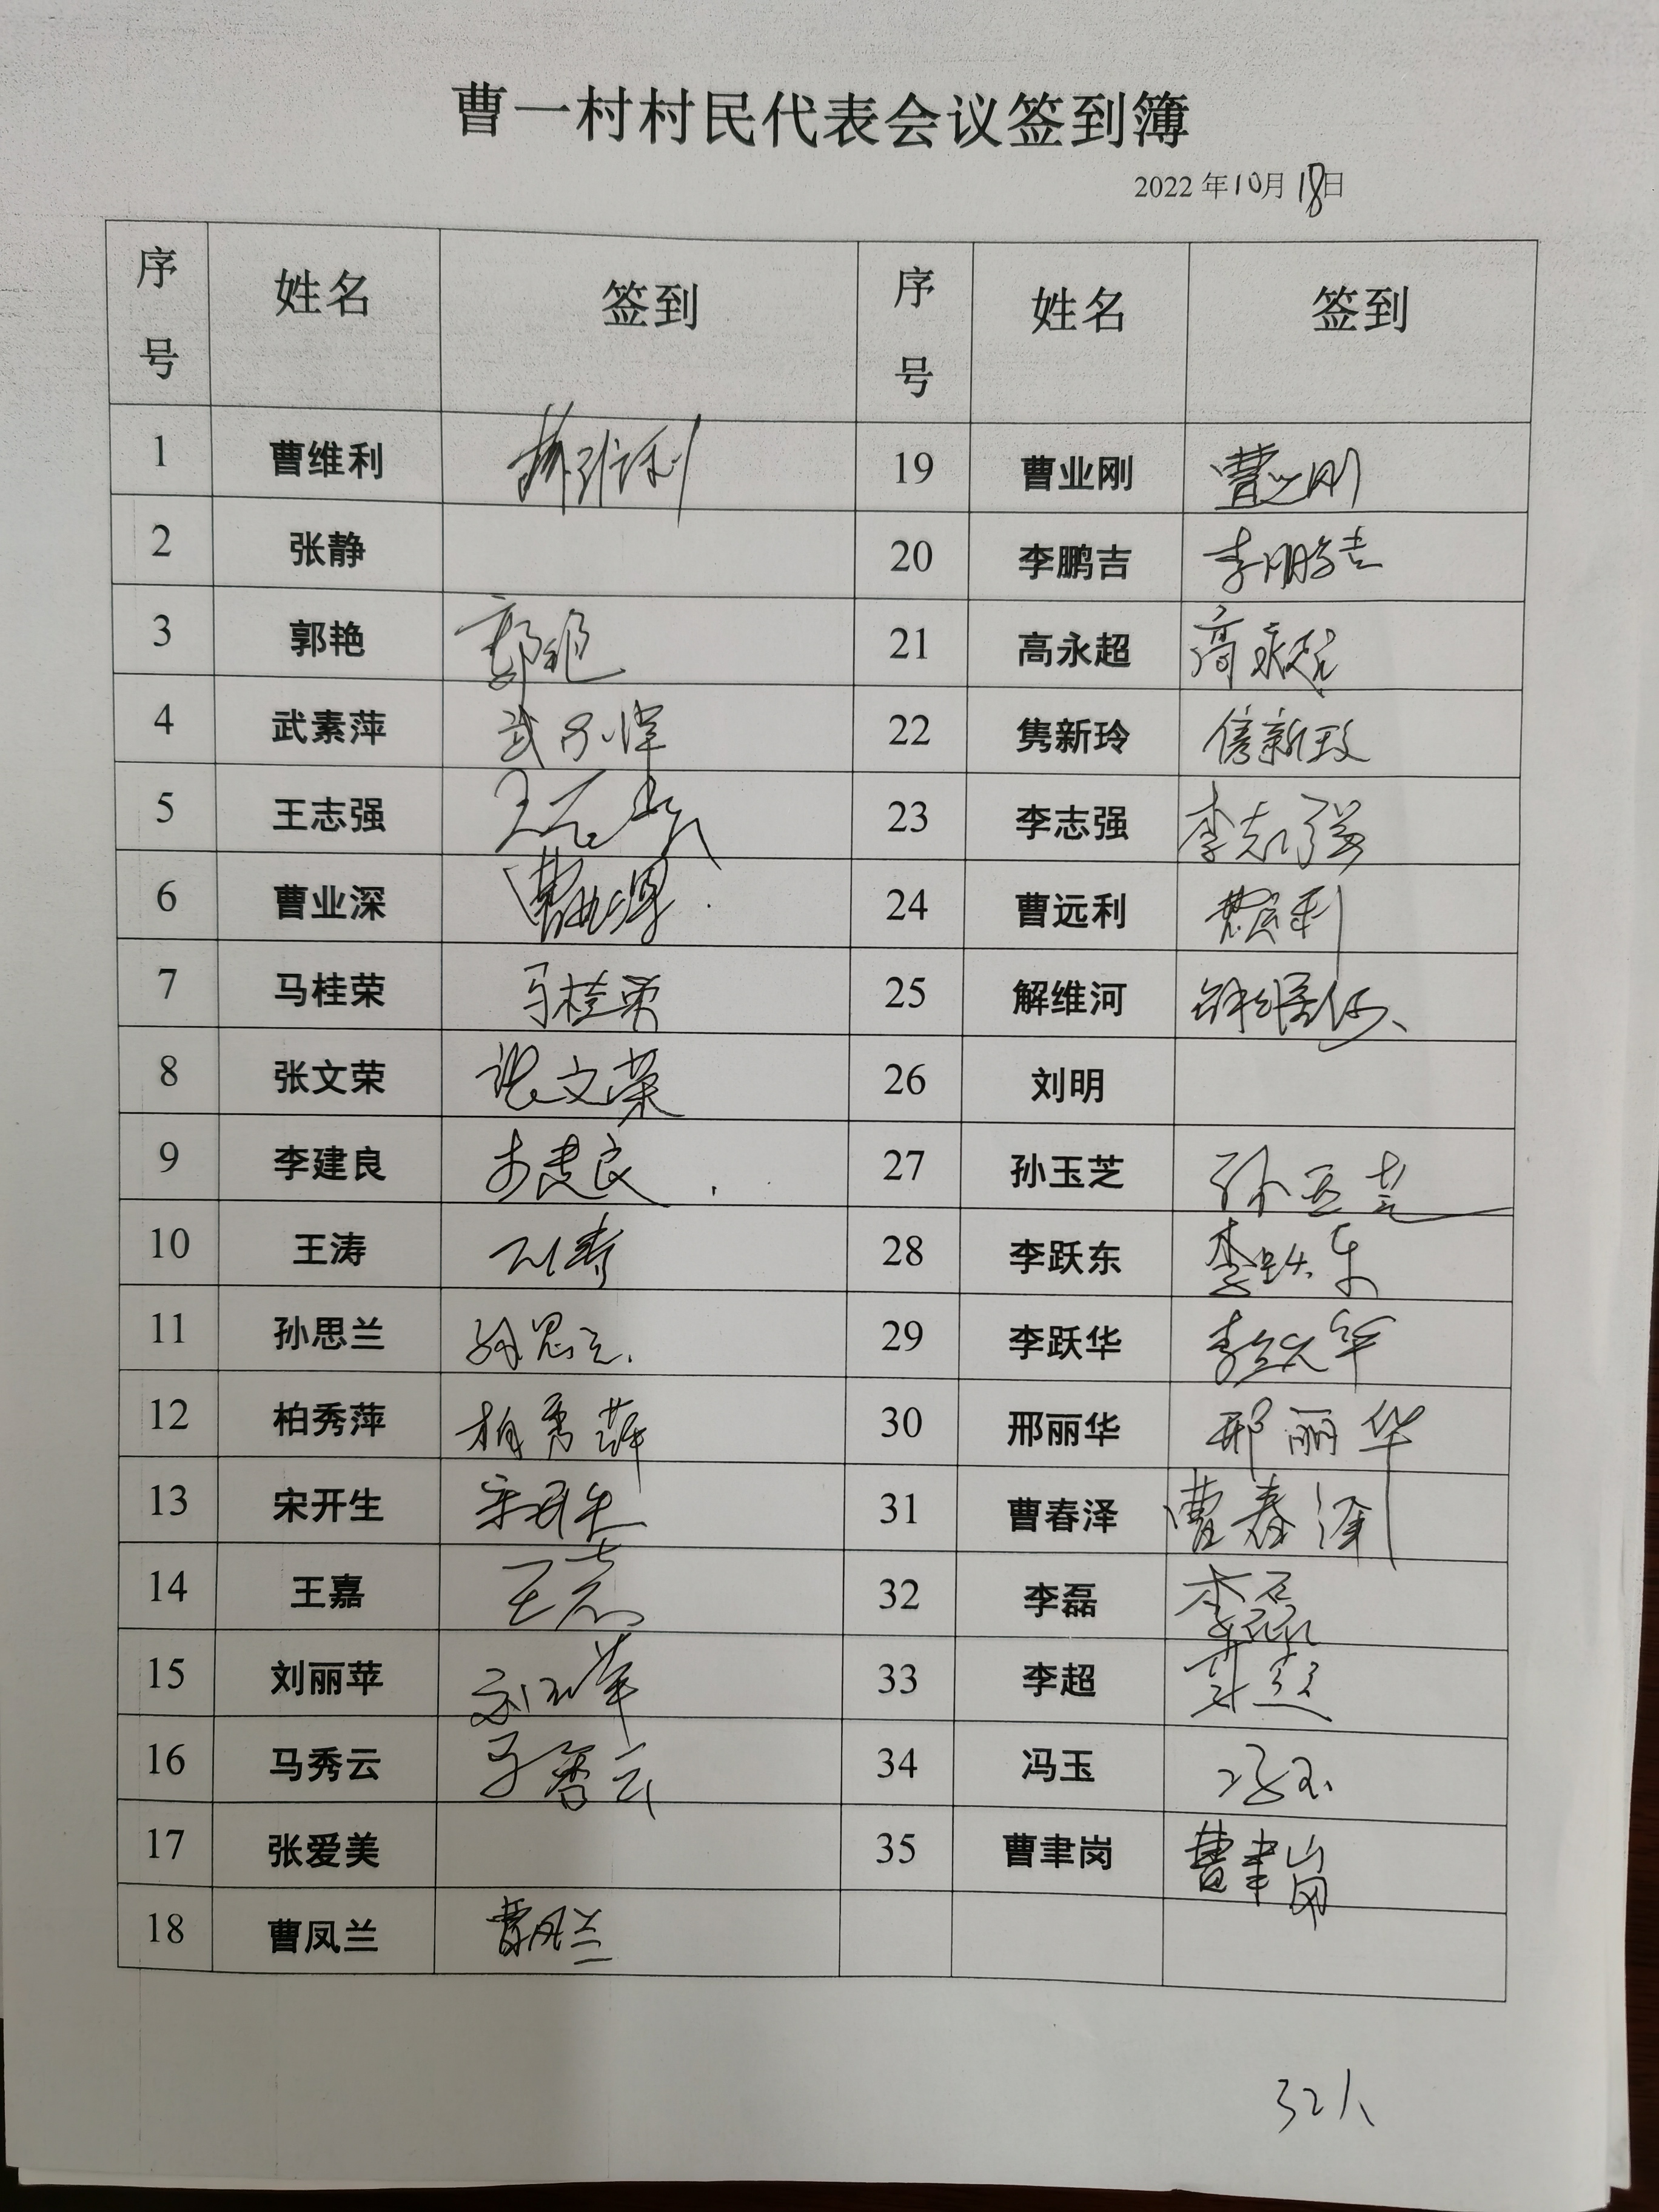 曹一村村民代表会议签到簿
2022年10月18日
序号 姓名 签到 序号 姓名 签到
1 曹维利 曹维利 19 曹业刚 曹业刚
2 张静 20 李鹏吉 李鹏吉
3 郭艳 郭艳 21 高永超 高永超
4 武素萍 武素萍 22 隽新玲 隽新玲
5 王志强 王志强 23 李志强 李志强
6 曹业深 曹业深 24 曹远利 曹远利
7 马桂荣 马桂荣 25 解维河 解维河
8 张文荣 张文荣 26 刘明
9 李建良 李建良 27 孙玉芝 孙玉芝
10 王涛 王涛 28 李跃东 李跃东
11 孙思兰 孙思兰 29 李跃华 李跃华
12 柏秀萍 柏秀萍 30 邢丽华 邢丽华
13 宋开生 宋开生 31 曹春泽 曹春泽
14 王嘉 王嘉 32 李磊 李磊
15 刘丽苹 刘丽苹 33 李超 李超
16 马秀云 马秀云 34 冯玉 冯玉
17 张爱美 35 曹聿岗 曹聿岗
18 曹凤兰 曹凤兰
32人